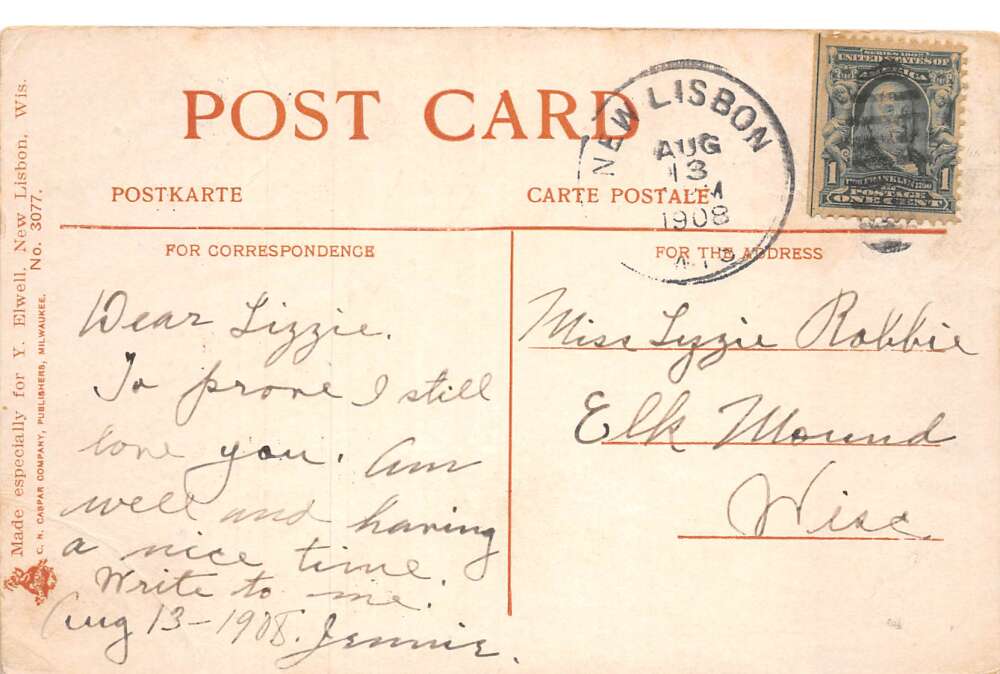 POST CARD
POSTKARTE
CARTE POSTALE
NEW LISBON
AUG
13
1908
SERIES 1902
UNITED STATES OF
AMERICA
1 1
FRANKLIN
POSTAGE
ONE CENT
FOR CORRESPONDENCE
FOR THE ADDRESS
Made especially for Y. Elwell, New Lisbon, Wis.
No. 3077.
C. N. CASPAR COMPANY, PUBLISHERS, MILWAUKEE.
Dear Lizzie.
To prove I still
love you. Am
well and having
a nice time.
Write to me.
Aug 13-1908. Jennie.
Miss Lyzzie Robbie
Elk Mound
Wisc.